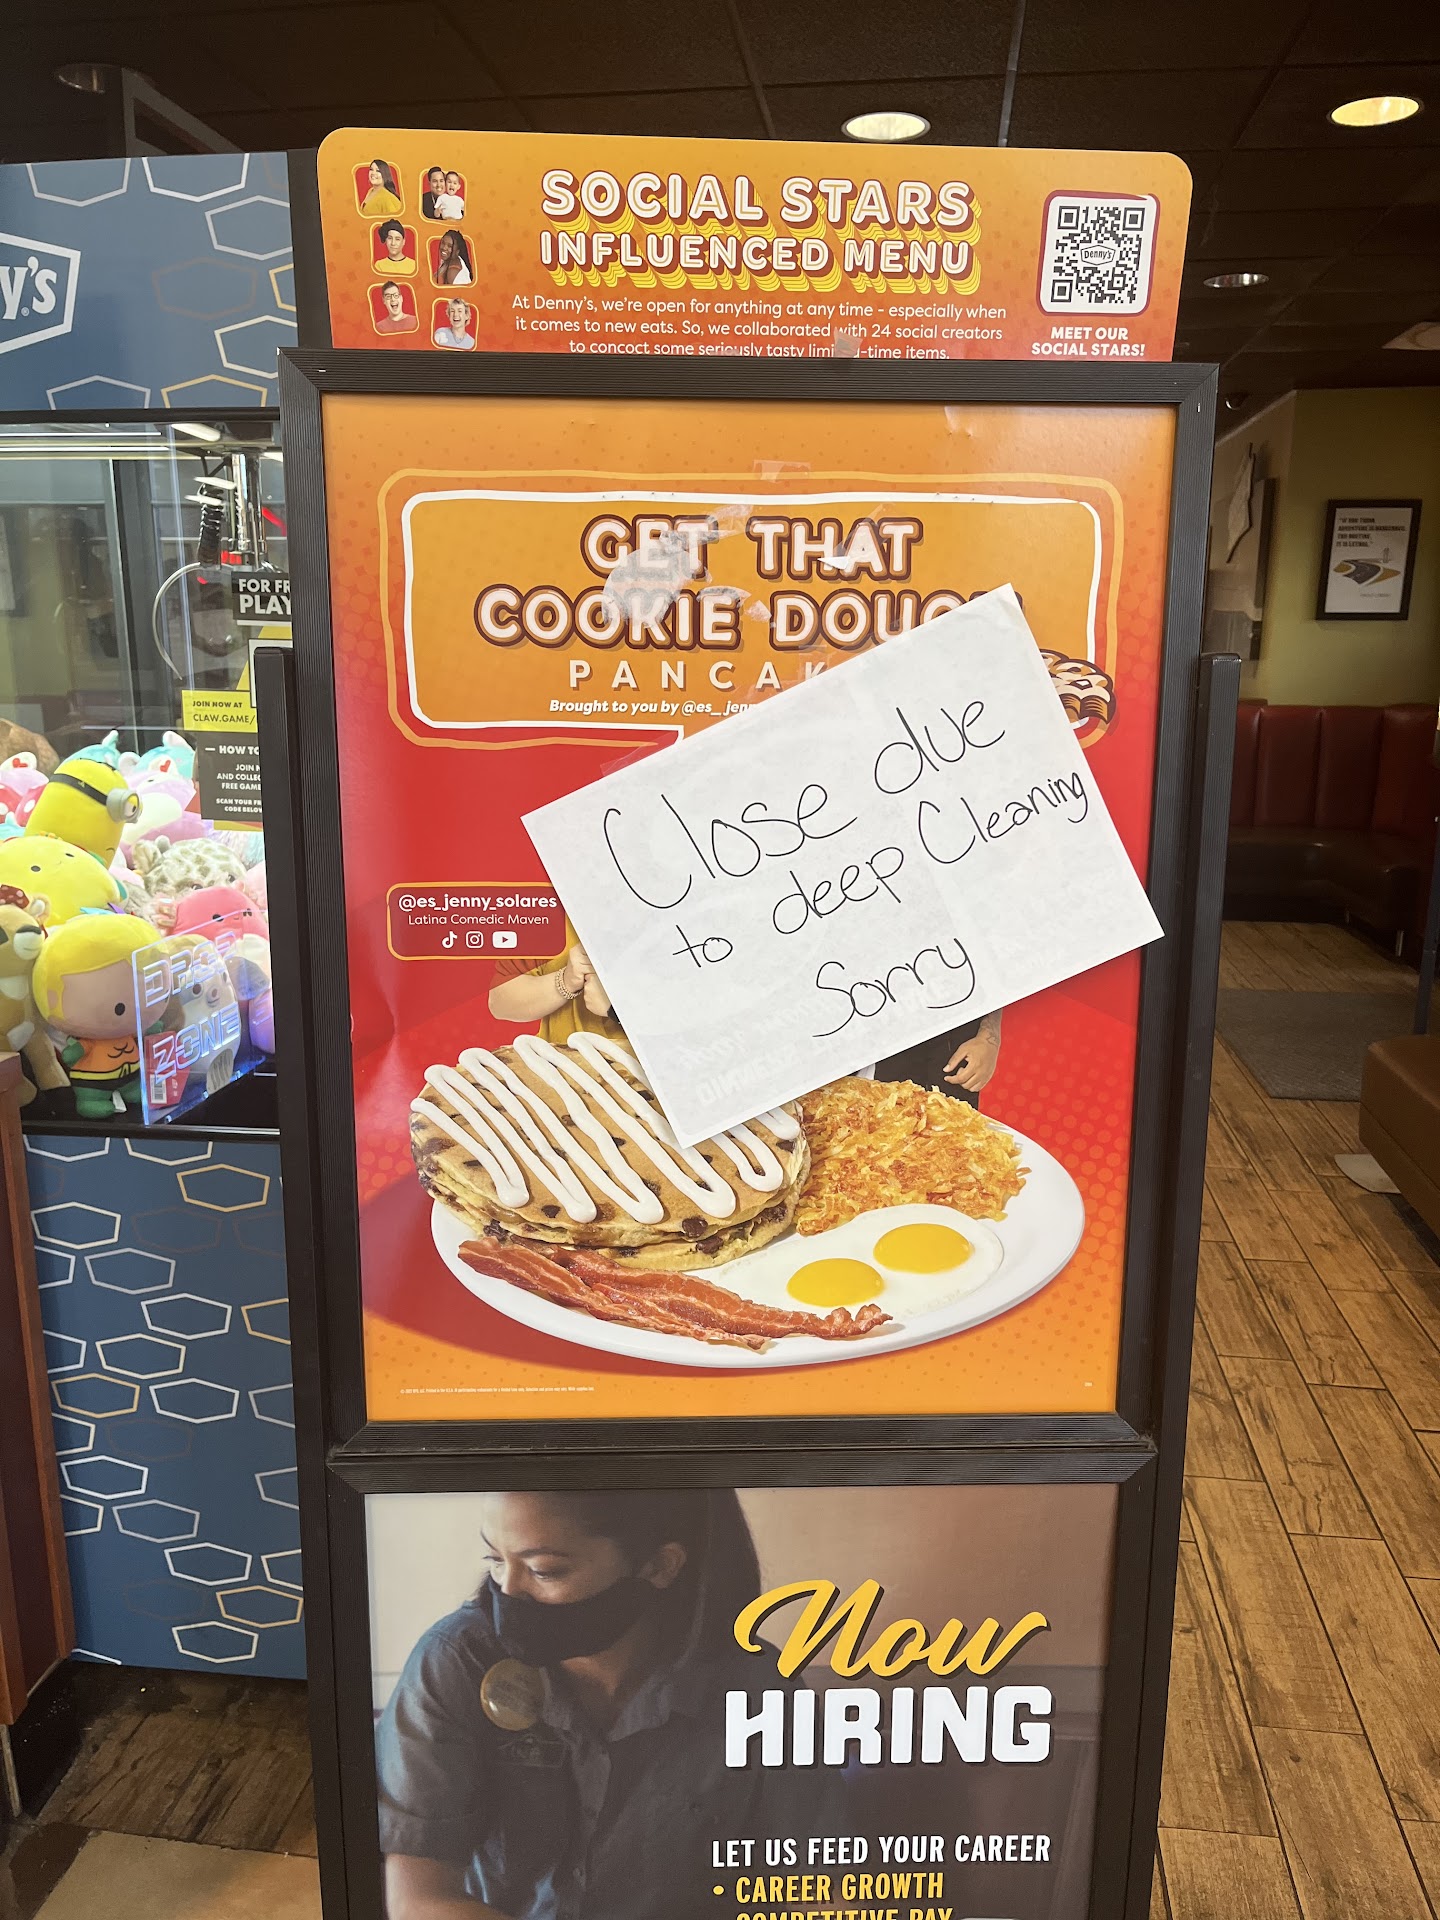 SOCIAL STARS
INFLUENCED MENU
At Denny's, we're open for anything at any time - especially when
it comes to new eats. So, we collaborated with 24 social creators
to concoct some seriously tasty limi -time items.
Denny's
MEET OUR
SOCIAL STARS!
y's
GET THAT
COOKIE DOUG
PANCAK
Brought to you by @es_jenn
Close due
to deep Cleaning
Sorry
@es_jenny_solares
Latina Comedic Maven
FOR FR
PLAY
JOIN NOW AT
CLAW.GAME/
HOW TO
JOIN
AND COLLEC
FREE GAME
SCAN YOUR FR
CODE BELOW
DROP
ZONE
Now
HIRING
LET US FEED YOUR CAREER
• CAREER GROWTH
COMPETITIVE PAY